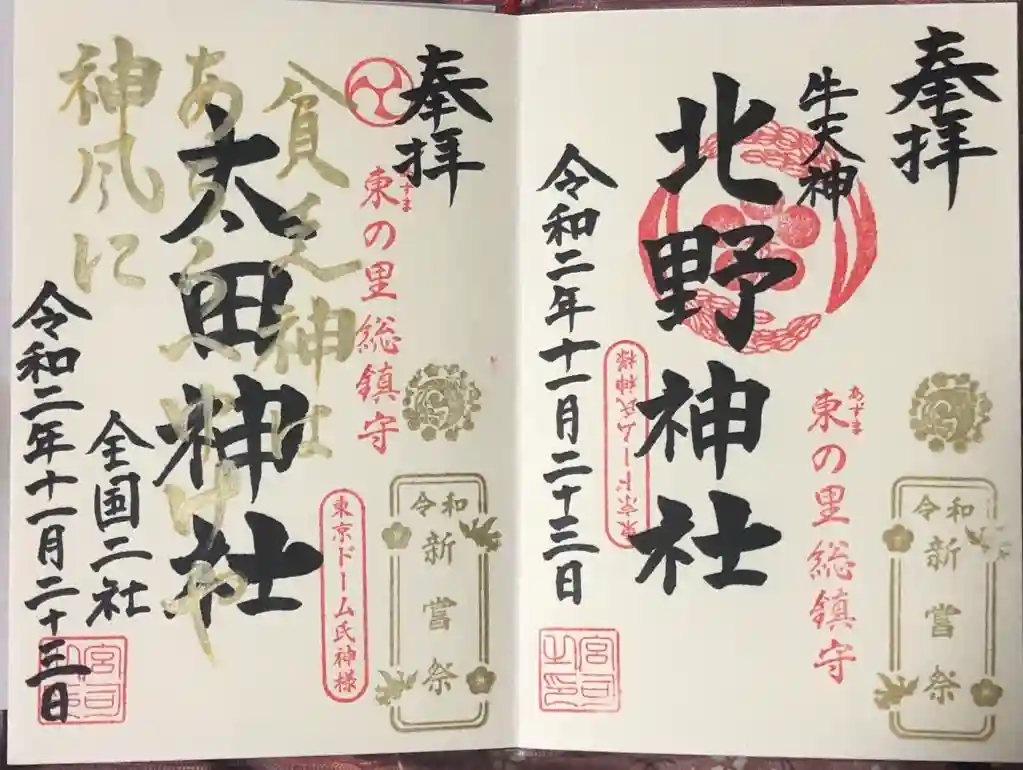 奉拝
牛天神
北野神社
令和二年十一月二十三日
東の里総鎮守
あずま
東京ドーム氏神様
令和
新嘗祭
宮司之印
奉拝
東の里総鎮守
あずま
太田神社
貧乏神は
神風に
全国二社
令和二年十一月二十三日
東京ドーム氏神様
令和
新嘗祭